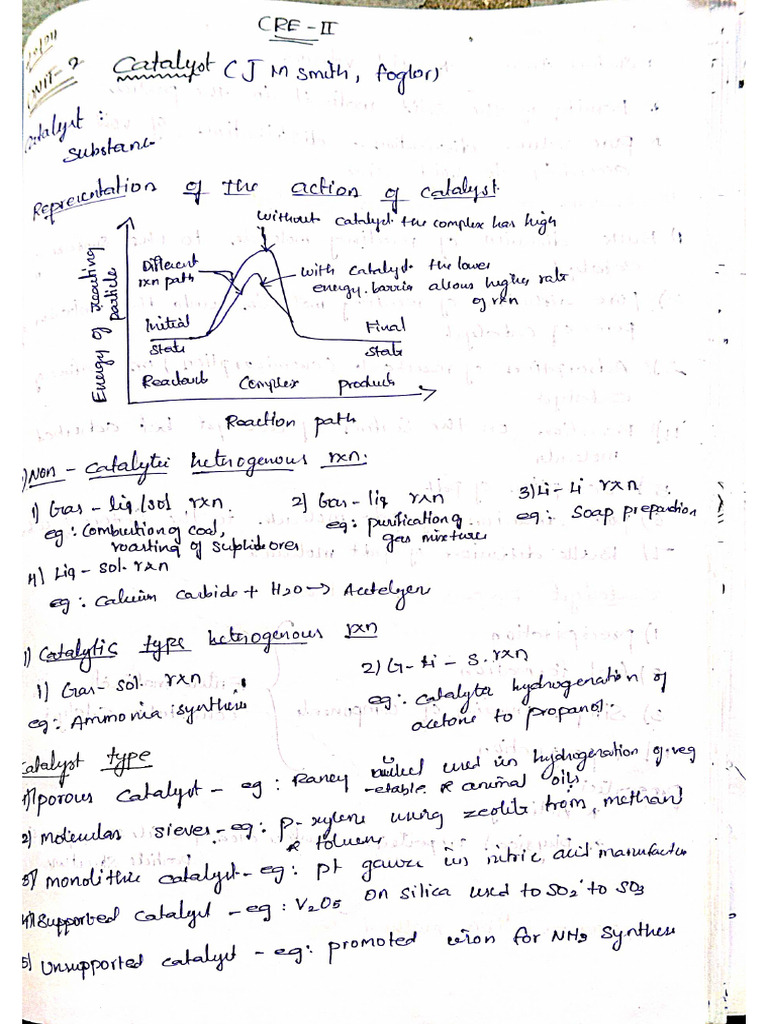 CRE-II
UNIT-2
Catalyst (J M Smith, foglor)
Catalyst:
Substance
Representation of the action of catalyst.
without catalyst the complex has high
Different rxn path
with catalyst the lower
energy barrier allows higher rate
of rxn
Energy of reacting particle
Initial state
Final state
Reactant Complex product
Reaction path
Non - catalytic heterogenous rxn:
1) Gas - liq/sol rxn.
eg: Combustion of coal,
roasting of sulphide ores
2) Gas - liq rxn
eg: purification of
gas mixture
3) Li - Li rxn
eg: Soap preparation
4) Liq - sol. rxn
eg: Calcium carbide + H2O → Acetelyen
Catalytic type heterogenous rxn
1) Gas- sol. rxn
eg: Ammonia synthesis
2) G- Li - S. rxn
eg: Catalytic hydrogenation of
acetone to propanol.
Catalyst type
1) porous Catalyst - eg: Raney nickel used in hydrogenation of veg
-etable & animal oils.
2) molecular sieves - eg: p-xylene using zeolite from methanol
& toluene
3) monolithic catalyst - eg: pt gauze in nitric acid manufacture
4) Supported catalyst - eg: V2O5 on silica used to SO2 to SO3
5) Unsupported catalyst - eg: promoted iron for NH3 synthesis